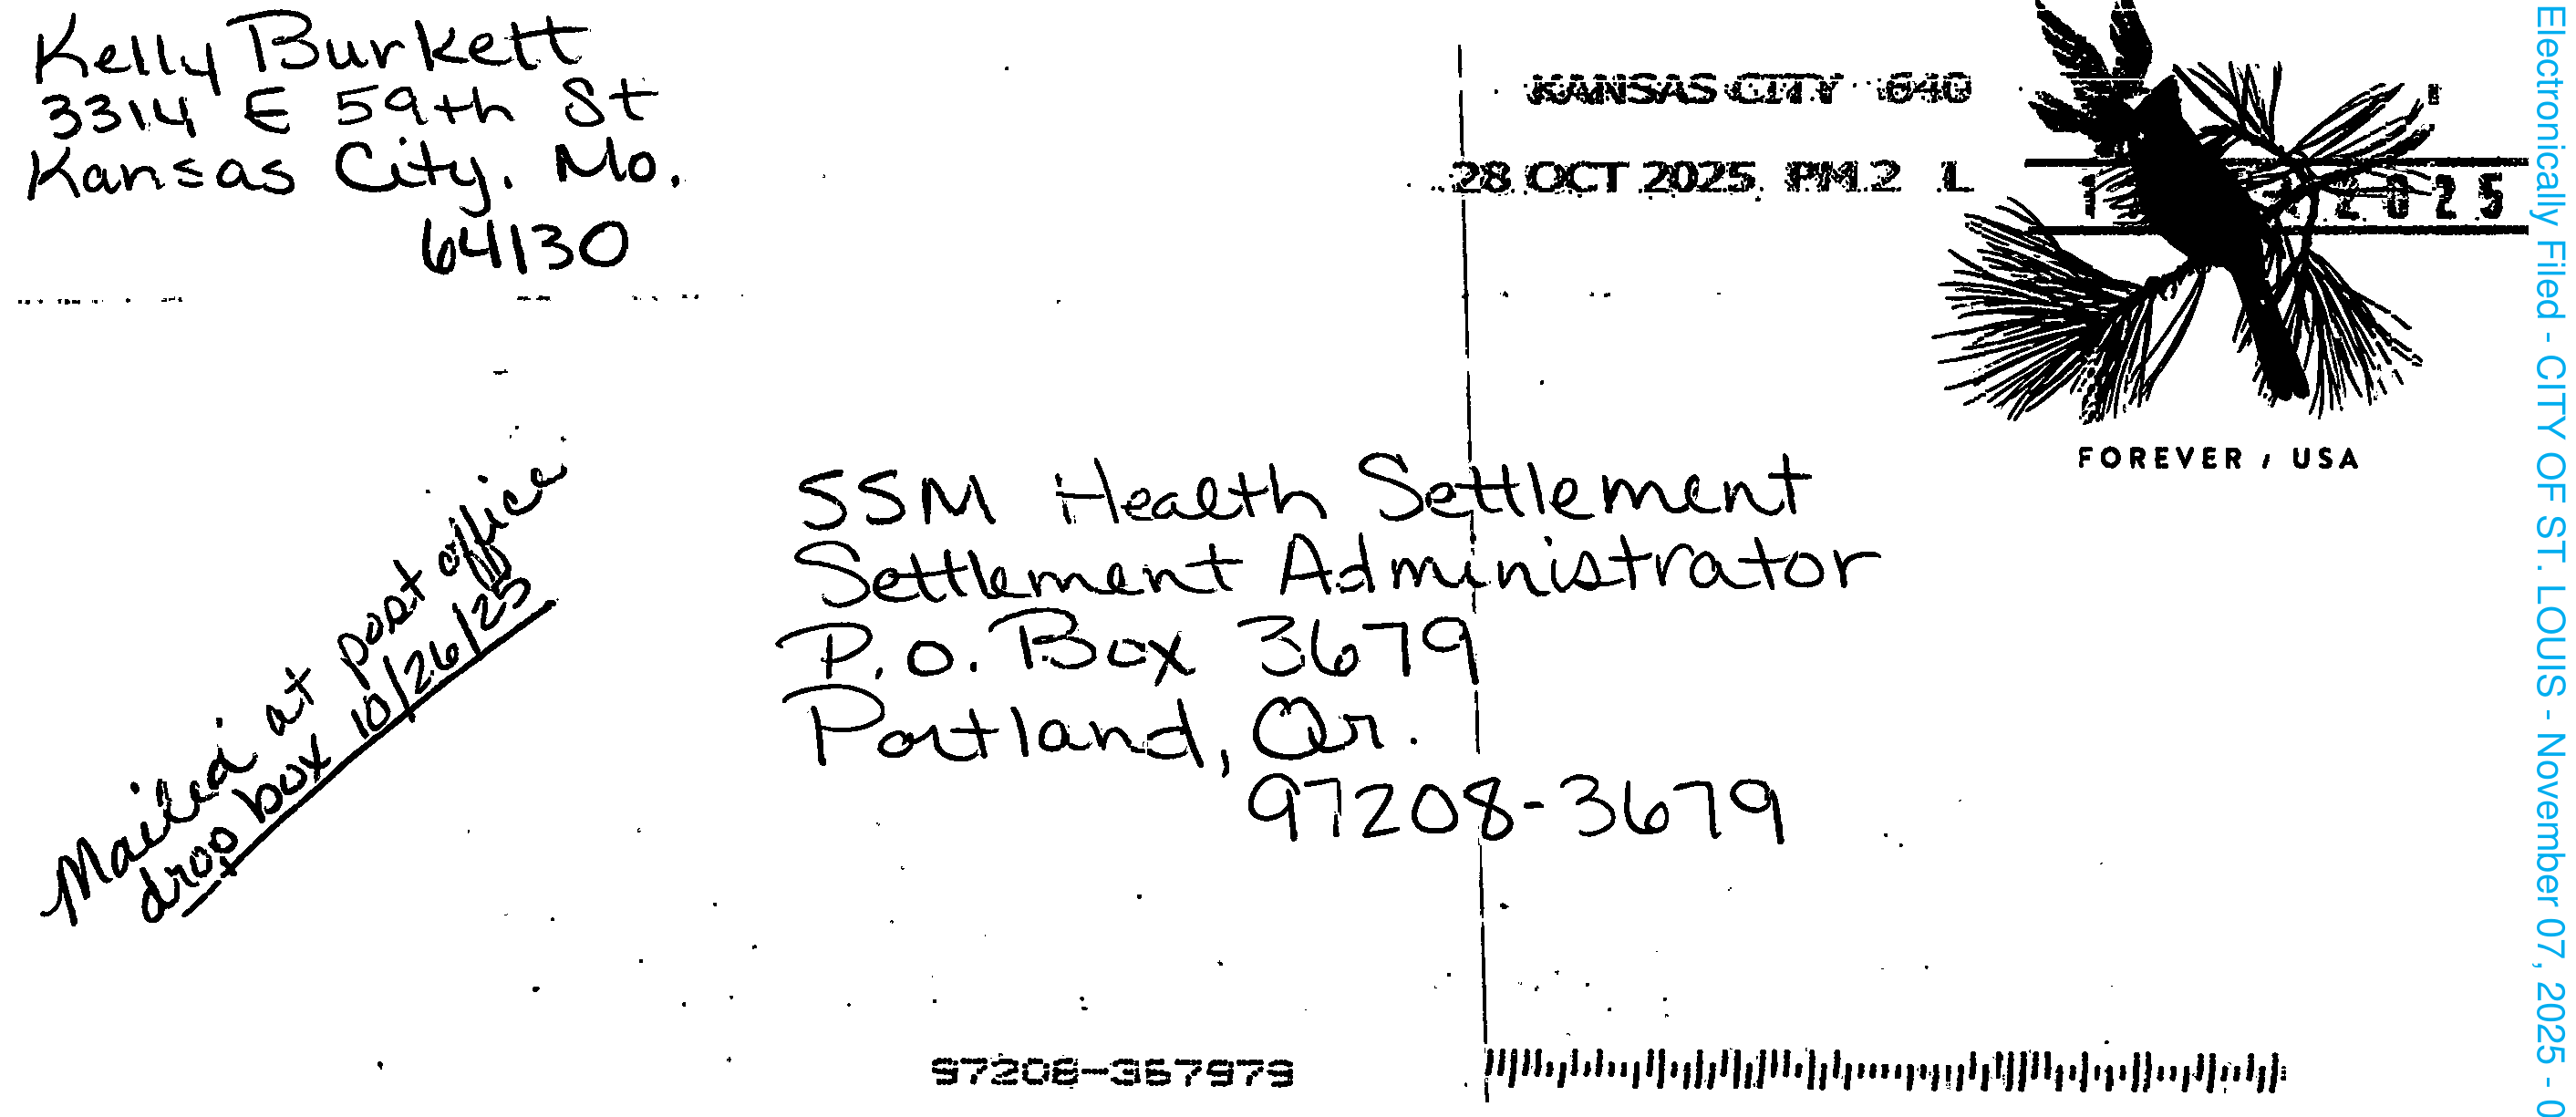 Kelly Burkett
3314 E 59th St
Kansas City. Mo.
64130
KANSAS CITY 640
28 OCT 2025 PM 2 L
2025
FOREVER / USA
Mailed at post office
drop box 10/26/25
SSM Health Settlement
Settlement Administrator
P.O. Box 3679
Portland, Or.
97208-3679
97208-367979
Electronically Filed - CITY OF ST. LOUIS - November 07, 2025 - 0